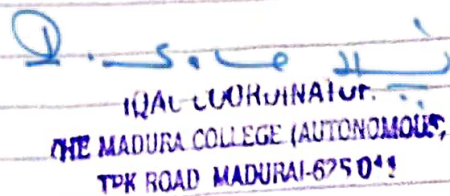 IQAC COORDINATOR
THE MADURA COLLEGE (AUTONOMOUS)
TPK ROAD MADURAI-625 011